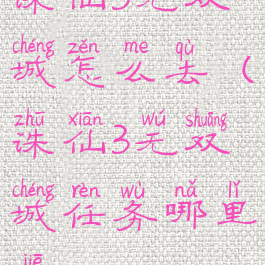 诛仙3无双
chéng zěn me qù
城怎么去（
zhū xiān wú shuāng
诛仙3无双
chéng rèn wù nǎ lǐ
城任务哪里
jiē